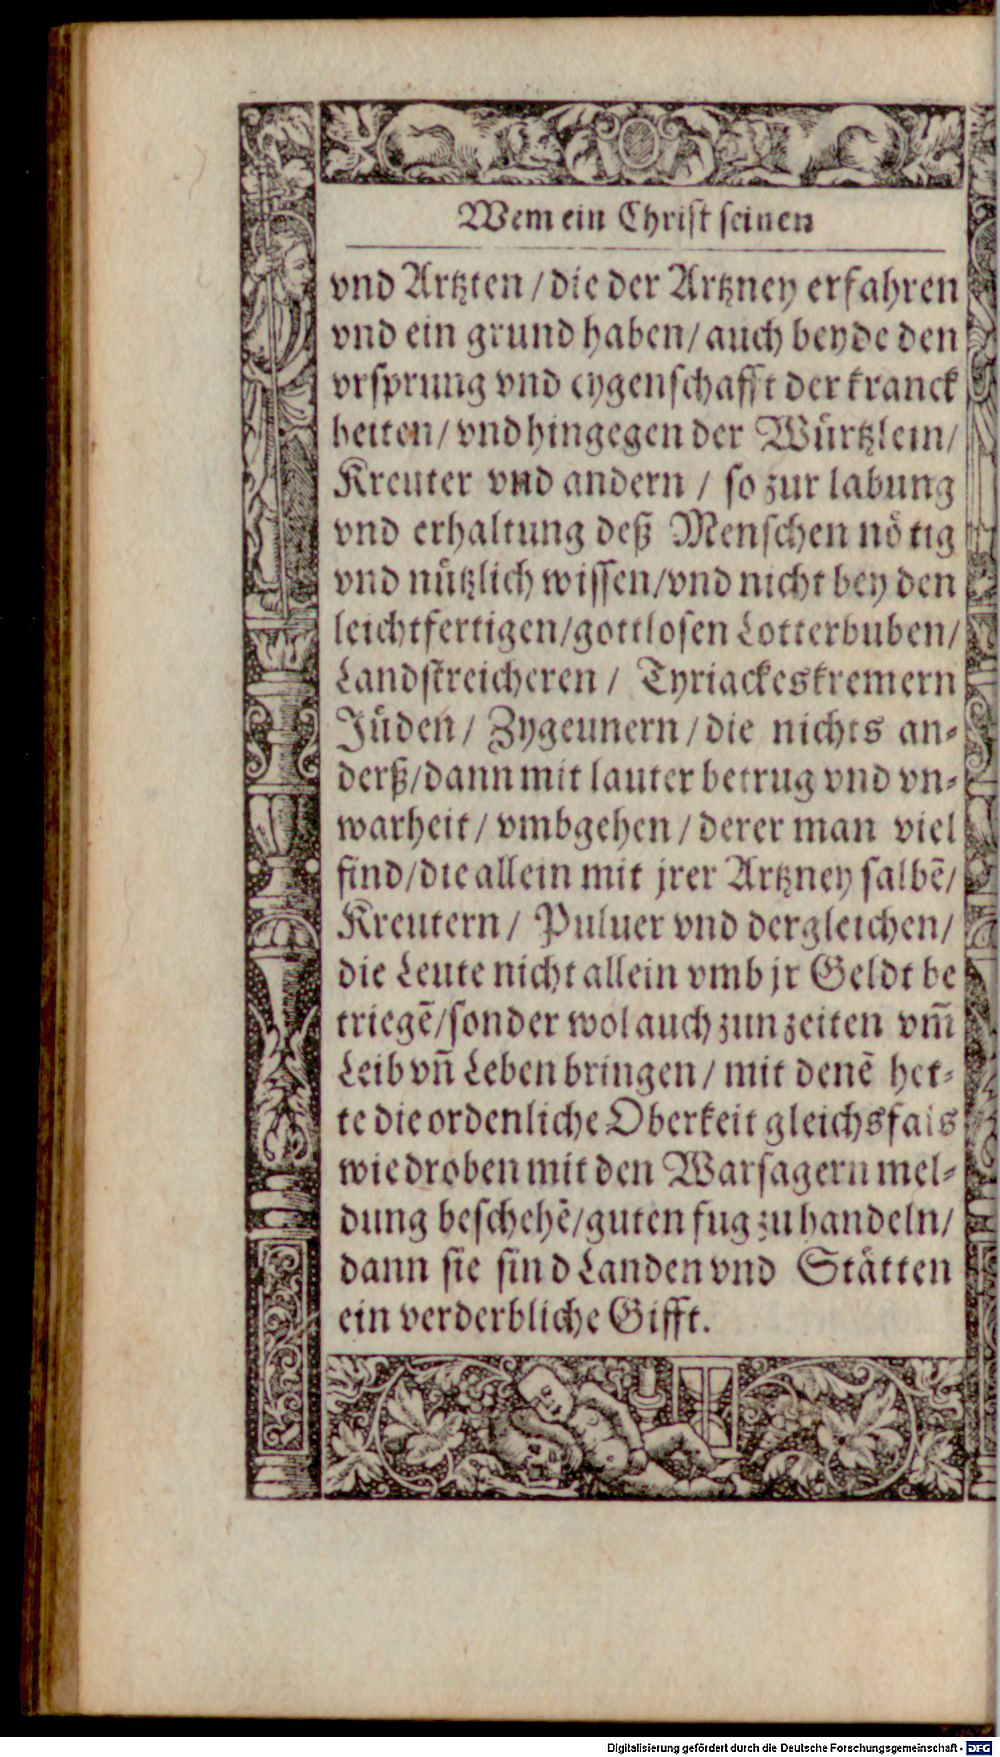 Wem ein Christ seinen
vnd Artzten / die der Artzney erfahren
vnd ein grund haben / auch beyde den
vrsprung vnd eygenschafft der kranck
heiten / vnd hingegen der Würtzlein /
Kreuter vnd andern / so zur labung
vnd erhaltung deß Menschen nötig
vnd nützlich wissen / vnd nicht bey den
leichtfertigen / gottlosen Lotterbuben /
Landstreicheren / Tyriackeskremern
Jüden / Zygeunern / die nichts an-
derß / dann mit lauter betrug vnd vn-
warheit / vmbgehen / derer man viel
find / die allein mit jrer Artzney salbē /
Kreutern / Puluer vnd dergleichen /
die Leute nicht allein vmb jr Geldt be
triegē / sonder wol auch zun zeiten vm̃
Leib vñ Leben bringen / mit denē het-
te die ordenliche Oberkeit gleichsfals
wie droben mit den Warsagern mel-
dung beschehē / guten fug zu handeln /
dann sie sind Landen vnd Stätten
ein verderbliche Gifft.
Digitalisierung gefördert durch die Deutsche Forschungsgemeinschaft - DFG